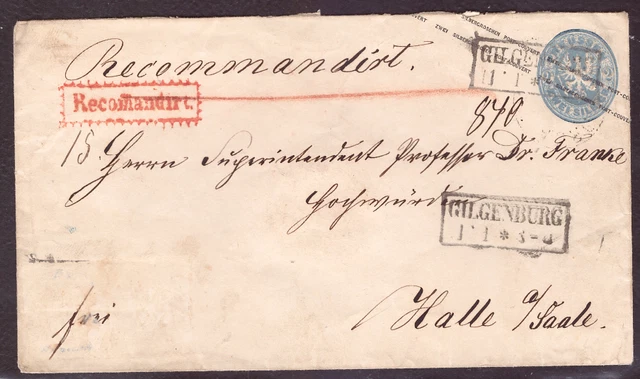 Recommandirt.
Recomandirt.
GILGE
870
15. Herrn Superintendent Professor Dr. Franke
Hochwürd
GILGENBURG
1 1 * 3-
Halle a/Saale.
frei